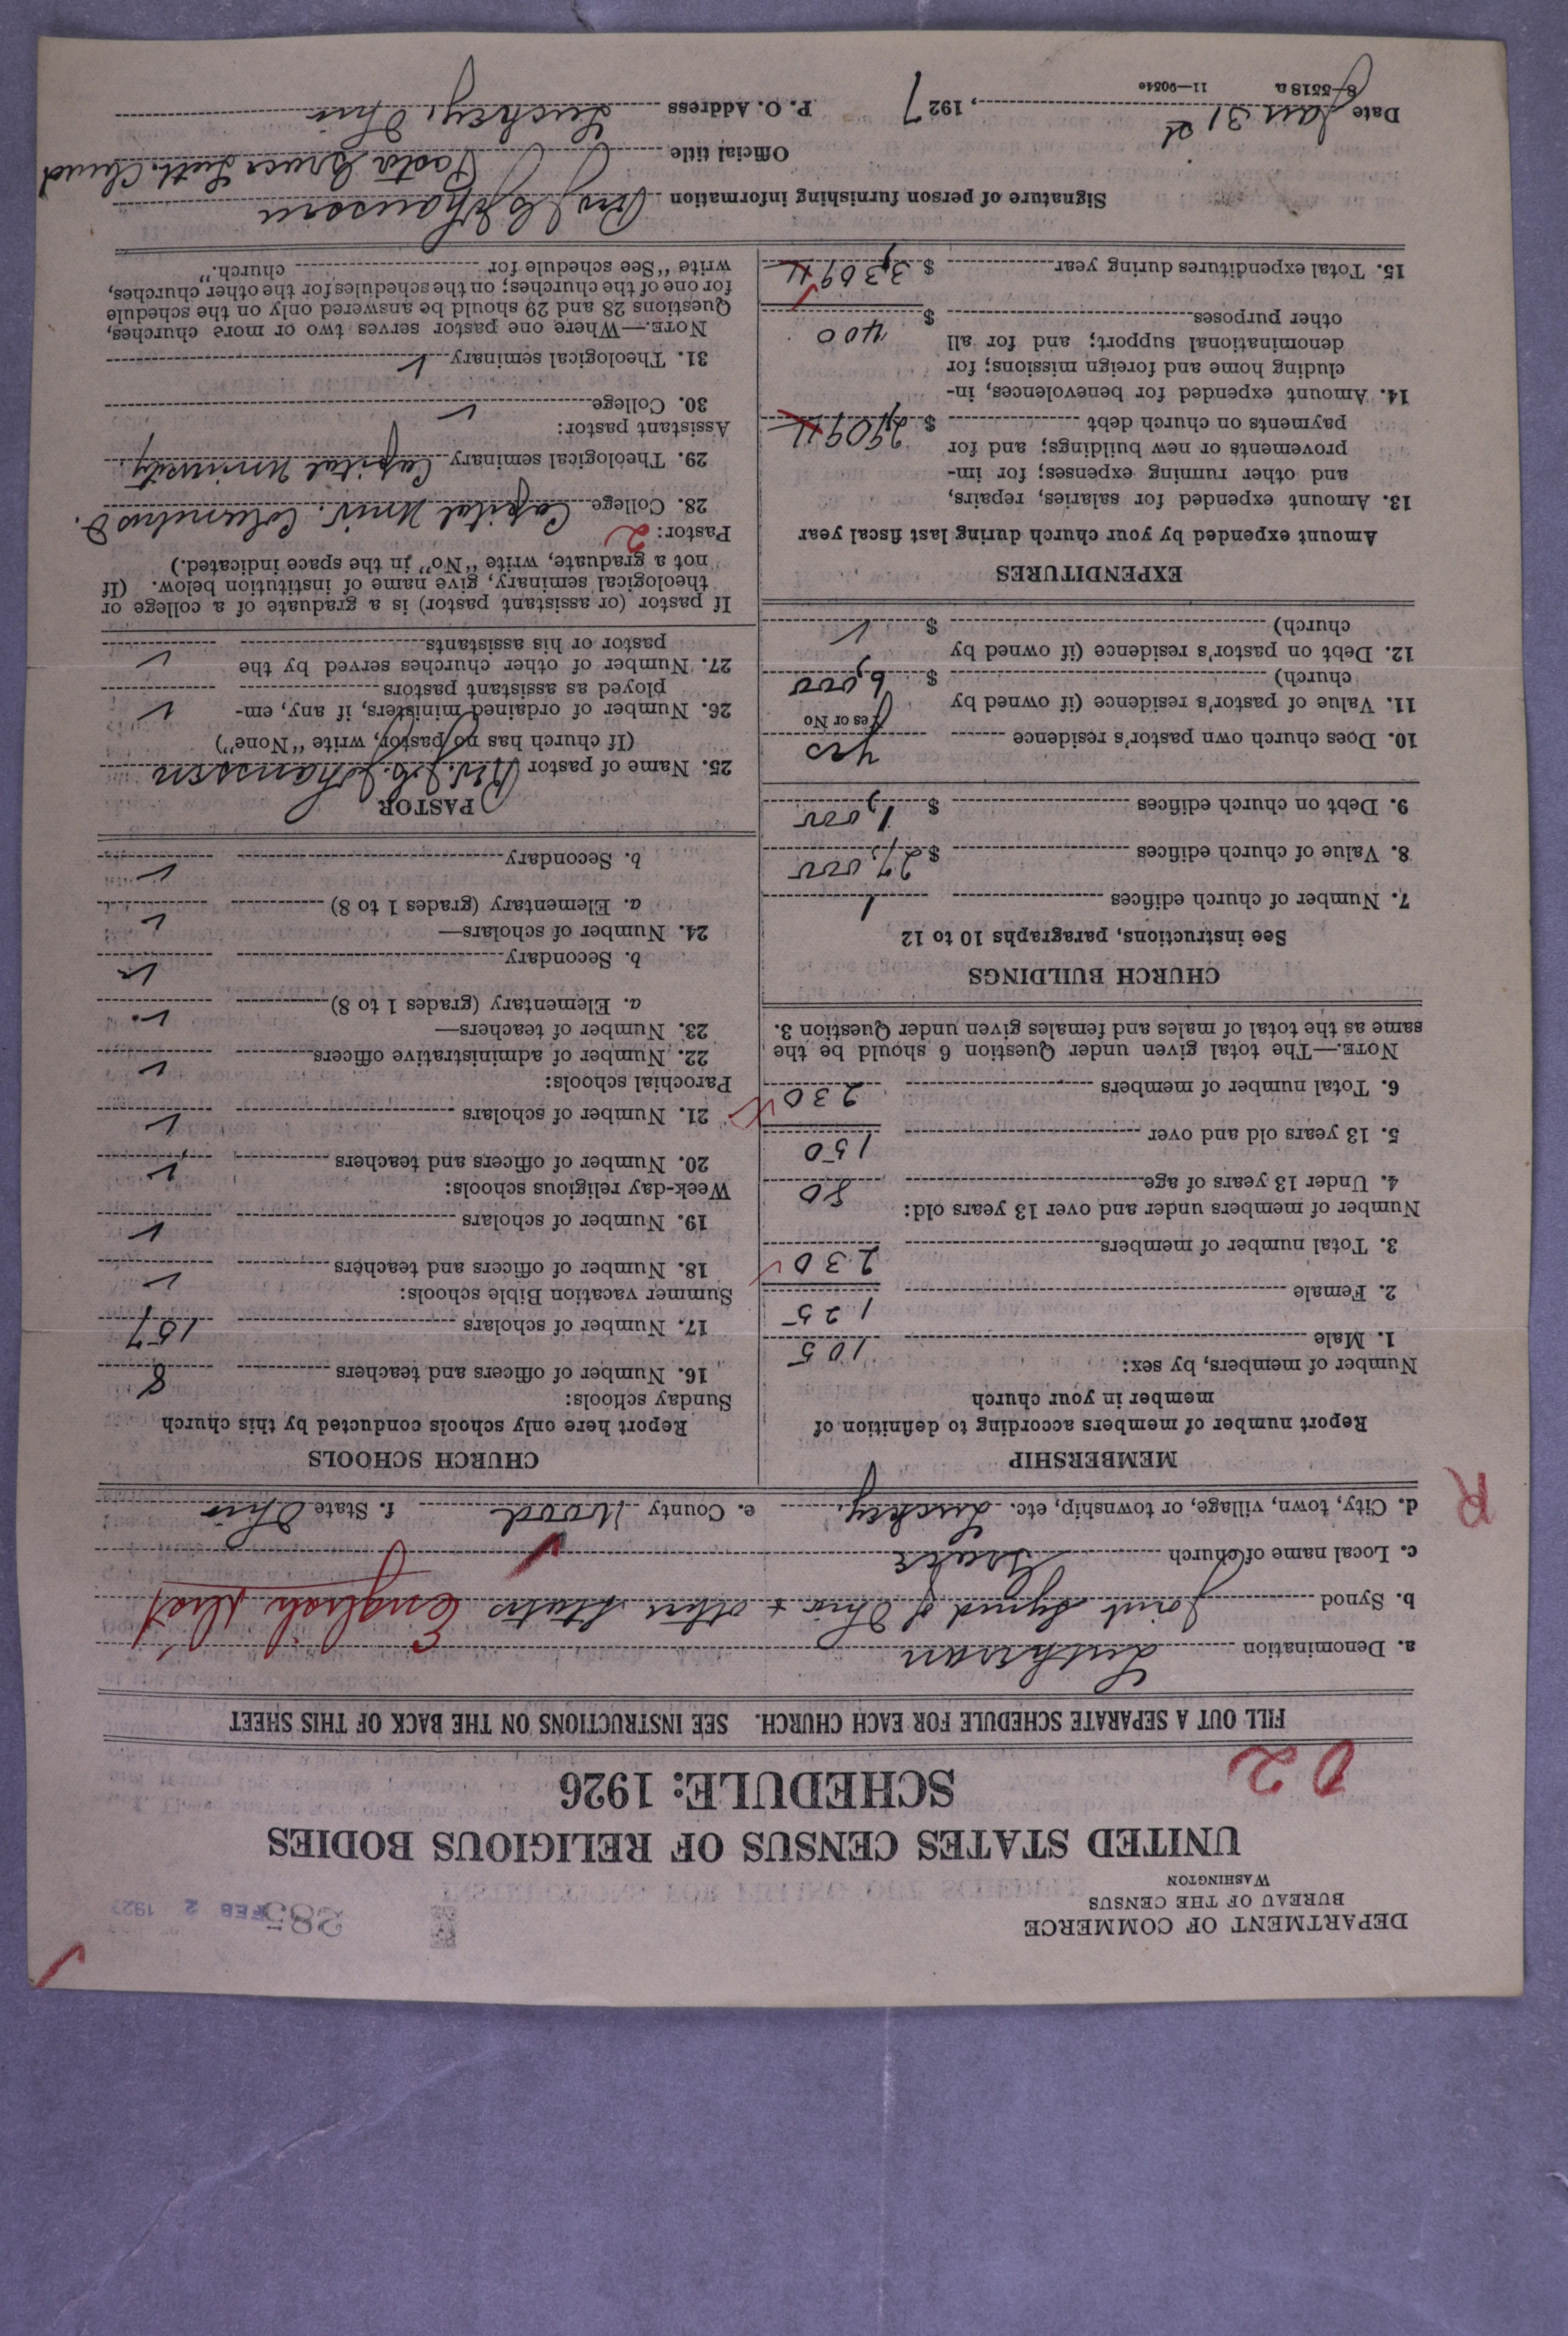 DEPARTMENT OF COMMERCE
BUREAU OF THE CENSUS
WASHINGTON
385
FEB 2 1927
UNITED STATES CENSUS OF RELIGIOUS BODIES
SCHEDULE: 1926
02
FILL OUT A SEPARATE SCHEDULE FOR EACH CHURCH. SEE INSTRUCTIONS ON THE BACK OF THIS SHEET
a. Denomination Lutheran
b. Synod Joint Synod of Ohio + other States English Dist
c. Local name of church Grace
d. City, town, village, or township, etc. Luckey, e. County Wood f. State Ohio
R
MEMBERSHIP
Report number of members according to definition of
member in your church
Number of members, by sex:
1. Male 105
2. Female 125
3. Total number of members 230
Number of members under and over 13 years old:
4. Under 13 years of age 80
5. 13 years old and over 150
6. Total number of members 230
NOTE.—The total given under Question 6 should be the
same as the total of males and females given under Question 3.
CHURCH BUILDINGS
See instructions, paragraphs 10 to 12
7. Number of church edifices 1
8. Value of church edifices $ 27,000
9. Debt on church edifices $ 1,000
10. Does church own pastor's residence yes
Yes or No
11. Value of pastor's residence (if owned by
church) $ 6,000
12. Debt on pastor's residence (if owned by
church) $ ✓
EXPENDITURES
Amount expended by your church during last fiscal year
13. Amount expended for salaries, repairs,
and other running expenses; for im-
provements or new buildings; and for
payments on church debt $ 2,909
14. Amount expended for benevolences, in-
cluding home and foreign missions; for
denominational support; and for all
other purposes $ 400
15. Total expenditures during year $ 3,309
CHURCH SCHOOLS
Report here only schools conducted by this church
Sunday schools:
16. Number of officers and teachers 8
17. Number of scholars 157
Summer vacation Bible schools:
18. Number of officers and teachers ✓
19. Number of scholars ✓
Week-day religious schools:
20. Number of officers and teachers ✓
21. Number of scholars ✓
Parochial schools:
22. Number of administrative officers ✓
23. Number of teachers—
a. Elementary (grades 1 to 8) ✓
b. Secondary ✓
24. Number of scholars—
a. Elementary (grades 1 to 8) ✓
b. Secondary ✓
PASTOR
25. Name of pastor Rev. J. G. Johanssen
(If church has no pastor, write "None")
26. Number of ordained ministers, if any, em-
ployed as assistant pastors ✓
27. Number of other churches served by the
pastor or his assistants ✓
If pastor (or assistant pastor) is a graduate of a college or
theological seminary, give name of institution below. (If
not a graduate, write "No" in the space indicated.)
Pastor: 2
28. College Capital Univ. Columbus O.
29. Theological seminary Capital University,
Assistant pastor:
30. College ✓
31. Theological seminary ✓
NOTE.—Where one pastor serves two or more churches,
Questions 28 and 29 should be answered only on the schedule
for one of the churches; on the schedules for the other churches,
write "See schedule for church."
Signature of person furnishing information Johanssen
Official title Pastor Grace Luth. Church
Date Jan 31 st, 1927 P. O. Address Luckey, Ohio
8—5518 a 11—9054c